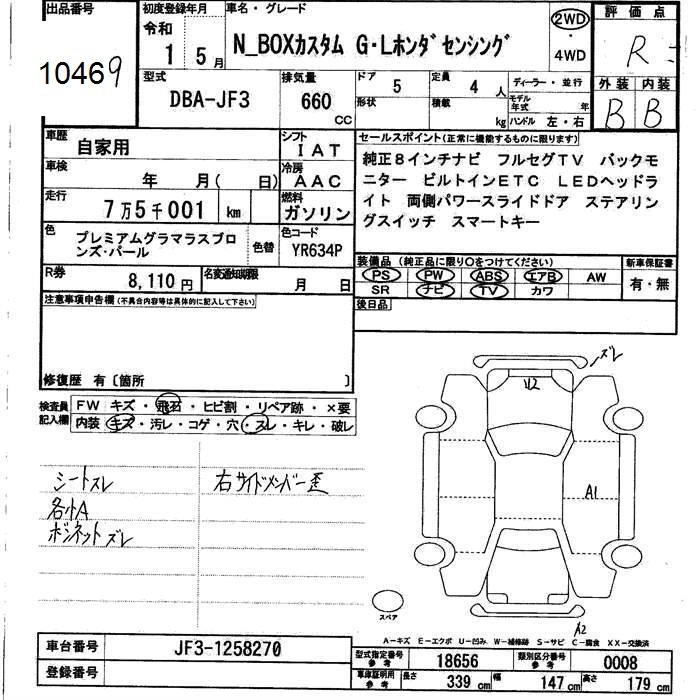 出品番号
10469
初度登録年月
令和
1 5月
車名・グレード
N_BOXカスタム G・Lホンダセンシング
2WD
・
4WD
評価点
R
型式
DBA-JF3
排気量
660
CC
ドア 5
定員 4 人
形状
積載 kg
ディーラー・並行
モデル年式 年
ハンドル 左・右
外装 内装
B B
車歴 自家用
シフト IAT
車検 年 月( 日)
冷房 AAC
走行 7万5千001 km
燃料 ガソリン
色 プレミアムグラマラスブロンズ・パール
色替
色コード YR634P
R券 8,110円
名変通知期限 月 日
セールスポイント(正常に機能するものに限ります)
純正8インチナビ フルセグTV バックモ
ニター ビルトインETC LEDヘッドラ
イト 両側パワースライドドア ステアリン
グスイッチ スマートキー
装備品(純正品に限り○をつけてください)
PS PW ABS エアB AW
SR ナビ TV カワ
新車保証書
有・無
後日品
注意事項申告欄(不具合内容等は具体的に記入して下さい)
修復歴 有〔箇所 〕
検査員記入欄
FW キズ・飛石・ヒビ割・リペア跡・×要
内装 キズ・汚レ・コゲ・穴・スレ・キレ・破レ
シートスレ
各小A
ボンネットズレ
右サイドメンバー歪
ズレ
U2
A1
A2
スペア
A-キズ E-エクボ U-凹み W-補修跡 S-サビ C-腐食 XX-交換済
車台番号 JF3-1258270
登録番号
型式指定番号 参考 18656
類別区分番号 参考 0008
車庫証明用 参考 長さ 339cm 幅 147cm 高さ 179cm